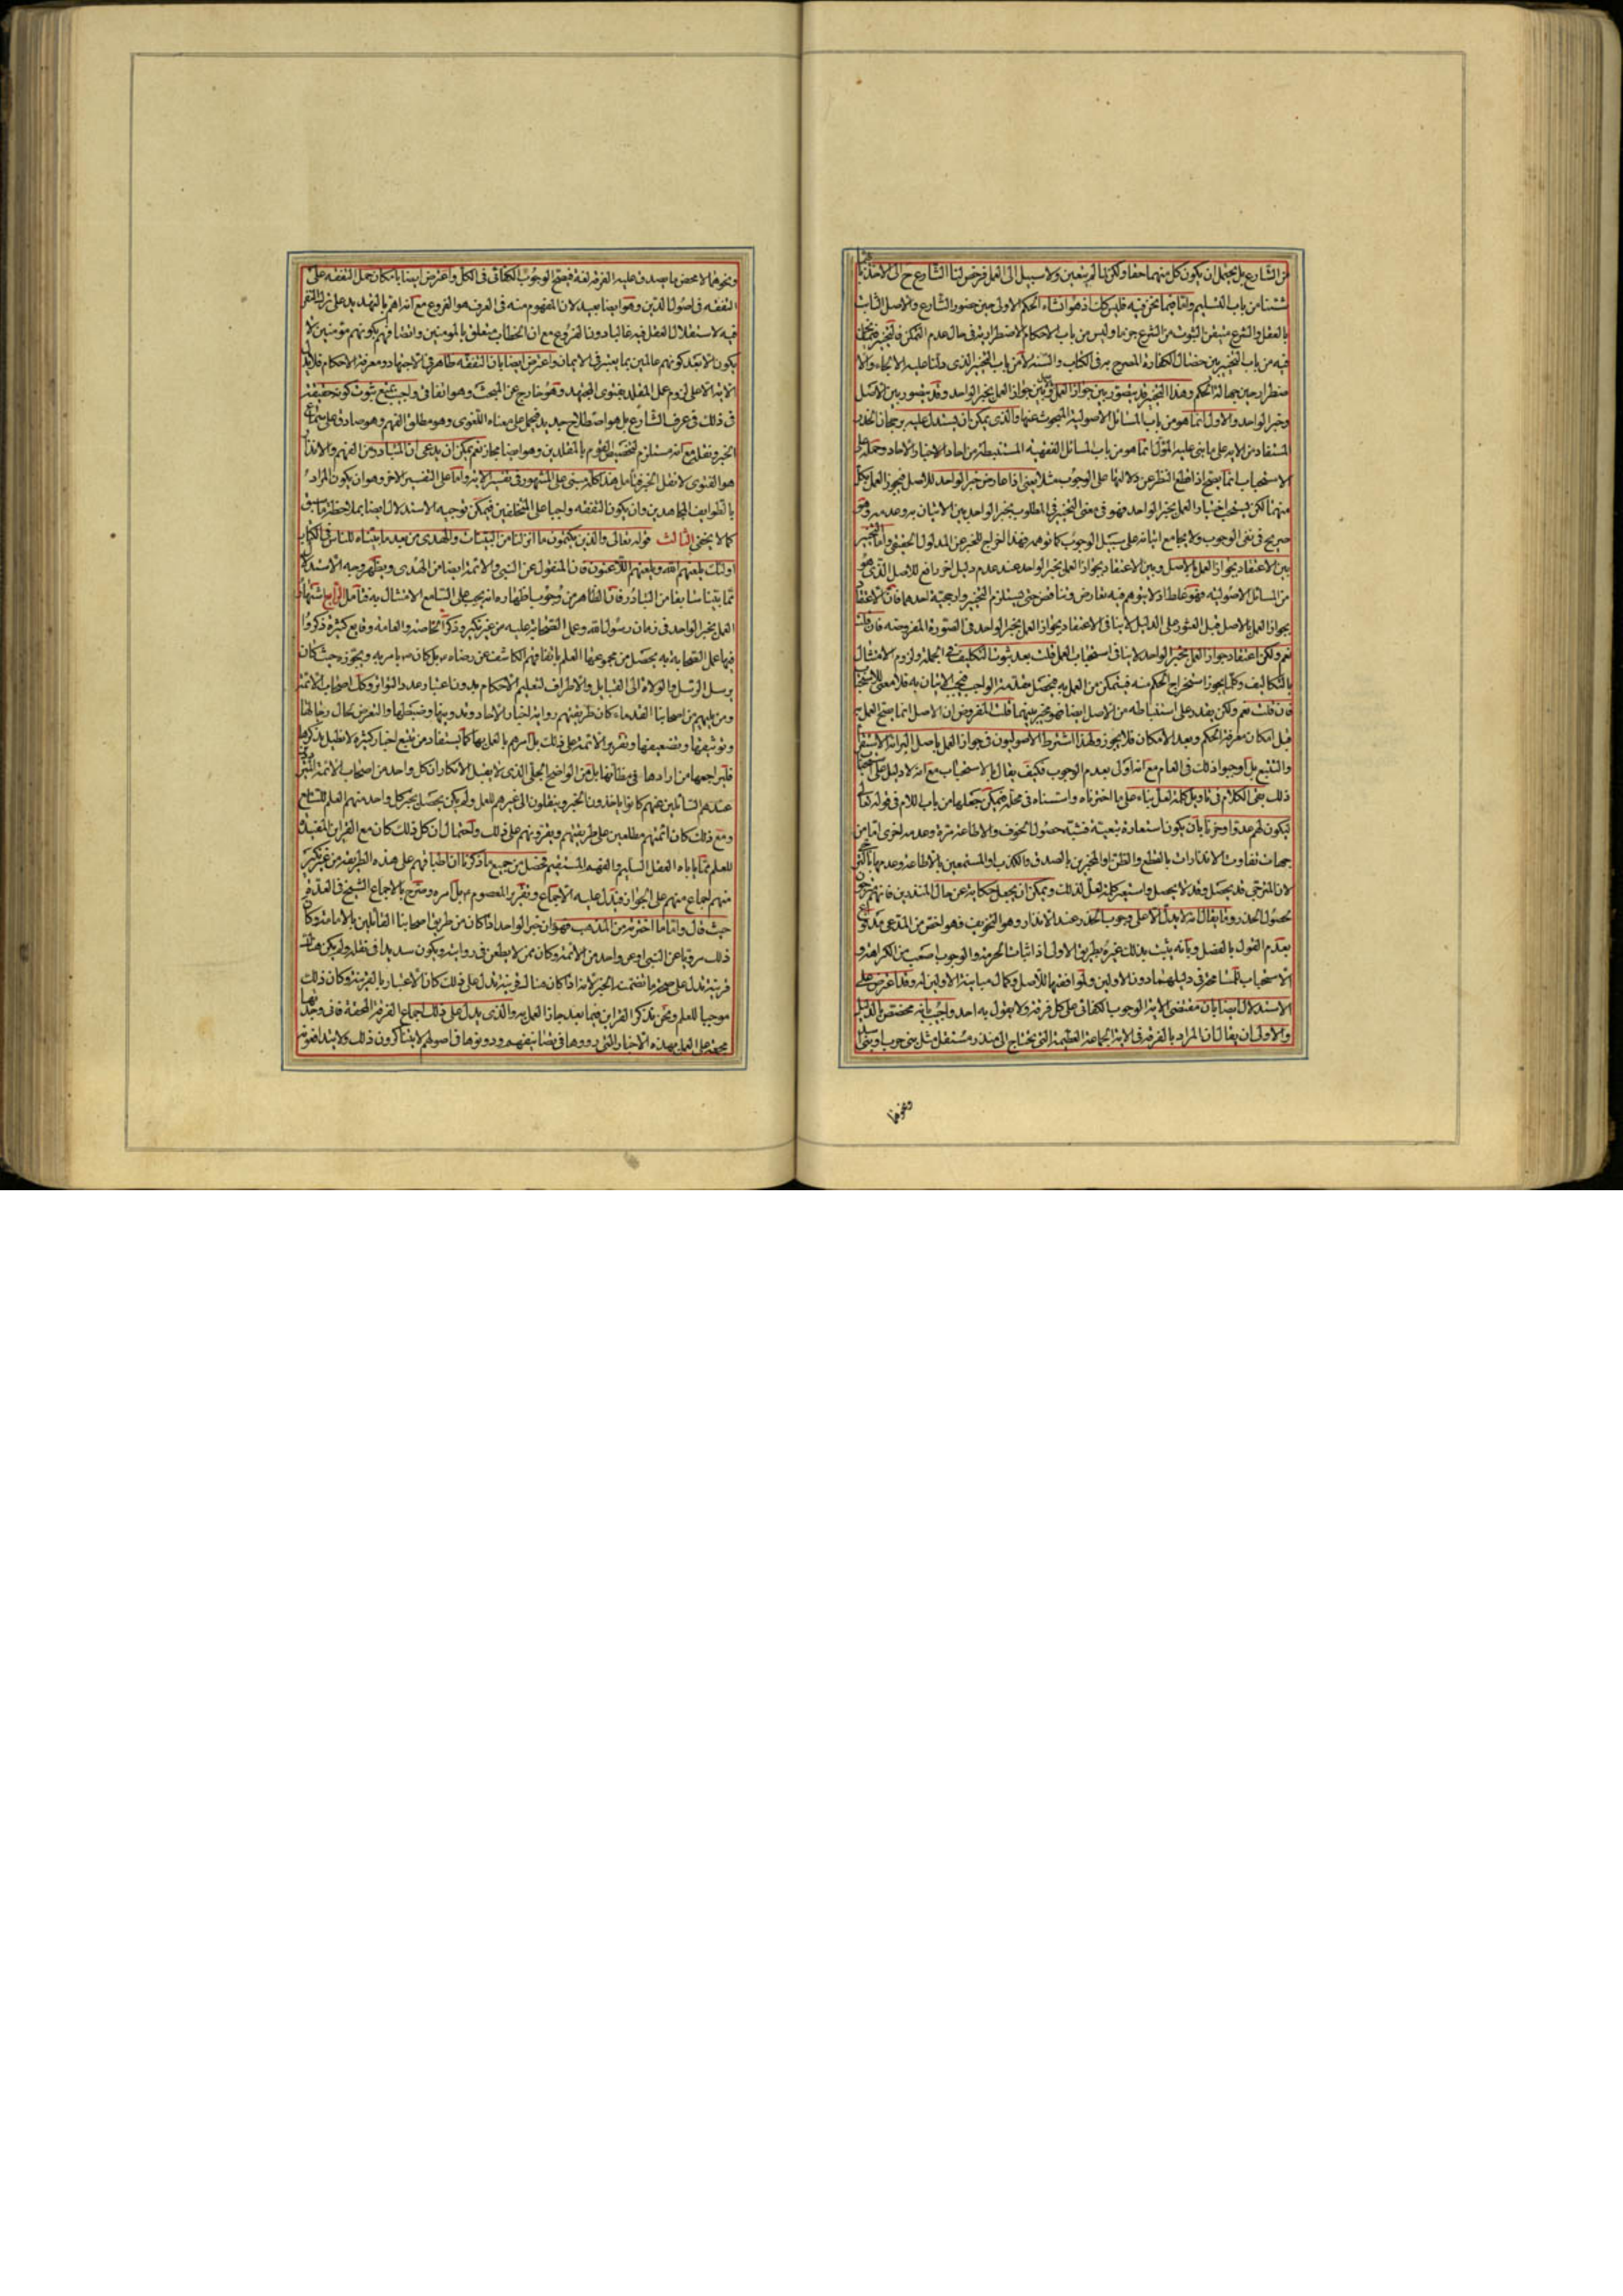 من الشارع بل يحتمل ان يكون كل منهما حقا ولكن لما لم يتعين ولا سبيل الى العمل فرخص لنا الشارع ح الى الاخذ بايّهما
شئنا من باب التسليم واما فيما نحن فيه فليس كذلك اذ هو انشاء الحكم الاولى حين حضور الشارع والاصل الثابت
بالعقل والشرع متيقن الثبوت من الشرع جزما وليس من باب الاحكام الاضطرارية في حال عدم التمكن فالتخيير
فيه من باب التخيير بين خصال الكفارة المصرح به في الكتاب والسنة لا من باب التخيير الذي دلنا عليه الالجاء والا
ضطرار حين جهالة الحكم وهذا التخيير قد يتصور بين جواز العمل وبين جواز العمل بخبر الواحد وقد يتصور بين الاصل
وخبر الواحد والاول انما هو من باب المسائل الاصولية المبحوث عنها والذي يمكن ان يستدل عليه برجحان الحذر
المستفاد من الاية على ما بنى عليه المؤل انما هو من باب المسائل الفقهية المستنبطة من احاد الاخبار الاحاد وحمله على
الاستحباب انما يصح اذا قطع النظر عن دلالتها على الوجوب مثلا يعني اذا عارض خبر الواحد للاصل فيجوز العمل بكل
منهما لكن يستحب اختيار العمل بخبر الواحد فهو في معنى التخيير في المطلوب بخبر الواحد بين الاتيان به وعدمه وهو
صريح في نفي الوجوب ولا يجامع اتيانه على سبيل الوجوب كما توهم فهذا اخراج للخبر عن المدلول الحقيقي واما التخيير
بين الاعتقاد بجواز العمل بالاصل وبين الاعتقاد بجواز العمل بخبر الواحد عند عدم دليل اخر رافع للاصل الذي هو
من المسائل الاصولية فهو غلط اذ لا يتوهم فيه تعارض وتناقض حتى يستلزم التخيير وارجحية احدهما فان الاعتقاد
بجواز العمل بالاصل قبل العثور على الدليل لا ينافي الاعتقاد بجواز العمل بخبر الواحد في الصورة المفروضه فان قلت
نعم ولكن اعتقاد جواز العمل بخبر الواحد لا ينافي استحباب العمل قلت بعد ثبوت التكليف في الجملة ولزوم الامتثال
بالتكاليف وكلما يجوز استخراج الحكم منه فيتمكن من العمل به فيحصل مقدمة الواجب فيجب الاتيان به فلا معنى للاستحباب
فان قلت نعم ولكن يقدر على استنباطه من الاصل ايضا فهو مخير بينهما قلت المفروض ان الاصل انما يصح العمل به
قبل امكان معرفة الحكم وبعد الامكان فلا يجوز ولهذا اشترط الاصوليون في جواز العمل باصل البرائة الاستقراء
والتتبع بل اوجبوا ذلك في العام مع انه اولى بعدم الوجوب فكيف يقال بالاستحباب مع انه لا دليل على استحباب
ذلك بقى الكلام في تاويل كلمة لعل بناء على ما اخترناه واستسناه في محله فيمكن جعلها من باب اللام في قوله تعالى
ليكون لهم عدوا وحزنا بان يكون استعارة تبعية فشبه حصول الخوف والاطاعة مرة وعدمه اخرى اما من
جهات تفاوت الانذارات بالقطع والظن او المخبرين بالصدق والكذب او المستمعين بالاطاعة وعدمها بالترجي
لان المترجى قد يحصل وقد لا يحصل واستعير كلمة لعل لذلك ويمكن ان يجعل حكاية عن حال المنذرين فانهم يرجون
حصول الحذر وما يقال انه لا يدل الا على وجوب الحذر عند الانذار وهو التخويف فهو اخص من المدعى مدفوع
بعدم القول بالفصل وبانه يثبت بذلك غيره بطريق الاولى اذ اثبات الحرمة والوجوب اصعب من الكراهة و
الاستحباب للمسامحة في دليلهما دون الاولين ولموافقتهما للاصل وكمال مباينة الاولين له وقد اعترض على
الاستدلال ايضا بان مقتضى الاية الوجوب الكفائي على كل فرقة ولا يقول به احد واجيب بانه مختص بالدليل
والاولى ان يقال ان المراد بالفرقة في الاية الجماعة العظيمة التي يحتاج الى منذر مستقل مثل بني حرب وبني اسد
ونحوها
ونحوهما لا محض ما يصدق عليه الفرقة لغة فيصح الوجوب الكفائي في الكل واعترض ايضا بامكان حمل التفقه على
التفقه في اصول الدين وهو ايضا بعيد لان المفهوم منه في العرف هو الفروع مع انه اهم بالتهديد على ترك النفر
فيه لاستقلال العقل فيه غالبا دون الفروع مع ان الخطاب متعلق بالمومنين واتصافهم بكونهم مؤمنين لا
يكون الا بعد كونهم عالمين بما يعتبر في الايمان واعترض ايضا بان التفقه ظاهر في الاجتهاد ومعرفة الاحكام فلا يدل
الاية الا على لزوم عمل المقلد بفتوى المجتهد وهو خارج عن المبحث وهو اتفاقى واجيب بمنع ثبوت كونه حقيقة
في ذلك في عرف الشارع بل هو اصطلاح جديد فيحمل على معناه اللغوى وهو مطلق الفهم وهو صادق على سماع
الخبر ونقله مع انه مستلزم لتخصيص القوم بالمقلدين وهو ايضا مجاز نعم يمكن ان يدعى ان المتبادر من الفهم والانذار
هو الفتوى لا نقل الخبر فتامل هذا كله مبنى على المشهور في تفسير الاية واما على التفسير الاخر وهو ان يكون المراد
بالطوايف المجاهدين وان يكون التفقه واجبا على المتخلفين فيمكن توجيه الاستدلال ايضا بملاحظة ما سبق
كما لا يخفى الثالث قوله تعالى والذين يكتمون ما انزلنا من البينات والهدى من بعد ما بيناه للناس في الكتاب
اولئك يلعنهم الله ويلعنهم اللاعنون فان المنقول عن النبي والائمة ايضا من الهدى ويظهر وجه الاستدلال
مما بيناه سابقا من التبادر فان الظاهر من وجوب اظهاره انه يجب على السامع الامتثال به فتامل الرابع اشتهار
العمل بخبر الواحد في زمان رسول الله وعمل الصحابة عليه من غير نكير وذكر الخاصة والعامة وقايع كثيرة ذكروا
فيها عمل الصحابة به يحصل من مجموعها العلم باتفاقهم الكاشف عن رضاه بل كان يامر به ويجوزه حيث كان
يرسل الرسل والولاة الى القبايل والاطراف لتعليم الاحكام بدون اعتبار عدد التواتر وكك اصحاب الائمة
ومن يليهم من اصحابنا القدماء كان طريقتهم رواية اخبار الاحاد وتدوينها وضبطها والتعرض لحال رجالها
وتوثيقها وتضعيفها وتقرير الائمة على ذلك بل امرهم بالعمل بها كما يستفاد من تتبع اخبار كثيرة لا نطيل بذكرها
فليراجعها من ارادها في مظانها بل من الواضح الجلى الذي لا يقبل الانكار ان كل واحد من اصحاب الائمة
عندهم السائلين عنهم كانوا ياخذون الخبر وينقلون الى غيرهم للعمل ولم يكن يحصل بخبر كل واحد منهم العلم للسامع
ومع ذلك كان ائمتهم مطلعين على طريقتهم ويقرونهم على ذلك واحتمال ان كل ذلك كان مع القراين المفيدة
للعلم مما ياباه العقل السليم والفهم المستقيم فحصل من جميع ما ذكرنا ان اطباقهم على هذه الطريقة من غير نكير
منهم اجماع منهم على الجواز فيدل عليه الاجماع وتقرير المعصوم بل امره وصرح بالاجماع الشيخ في العدة
حيث قال واما ما اخترته من المذهب فهو ان خبر الواحد اذا كان من طريق اصحابنا القائلين بالامامة وكان
ذلك مرويا عن النبي او عن واحد من الائمة وكان ممن لا يطعن في روايته ويكون سديدا في نقله ولم يكن هناك
قرينة تدل على صحة ما تضمنه الخبر لانه اذا كان هناك قرينة تدل على ذلك كان الاعتبار بالقرينة وكان ذلك
موجبا للعلم ونحن نذكر القراين فيما بعد جاز العمل به والذي يدل على ذلك اجماع الفرقة المحقة فاني وجدتها
مجمعة على العمل بهذه الاخبار التي رووها في تصانيفهم ودونوها في اصولهم لا يتناكرون ذلك ولا يتدافعونه